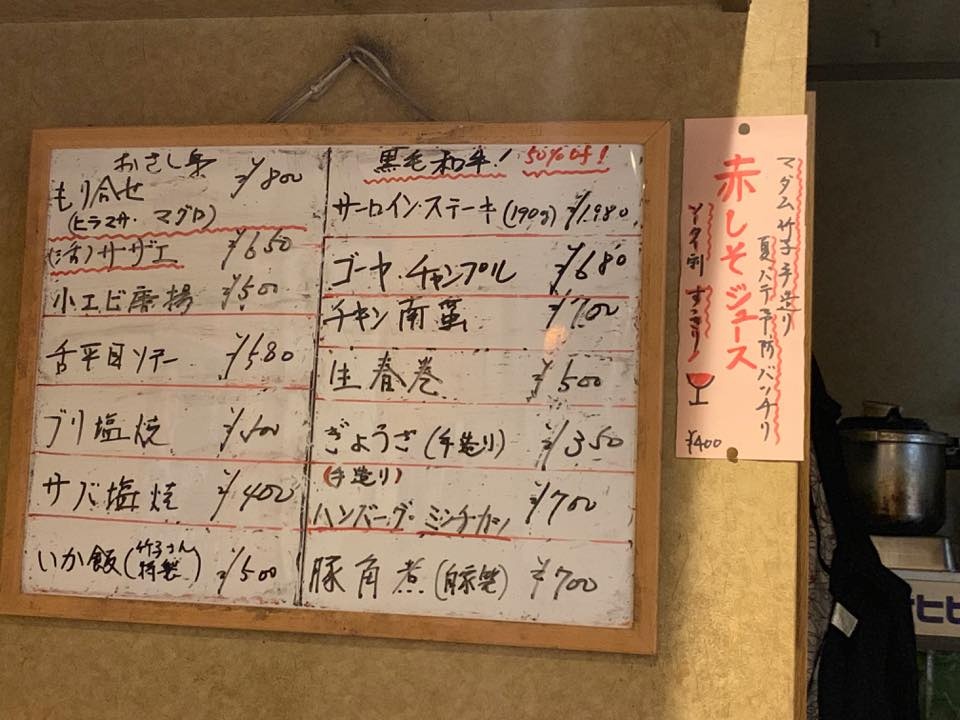 おさし身
もり合せ ¥800
(ヒラマサ・マグロ)
(活)サザエ ¥650
小エビ唐揚 ¥500
舌平目ソテー ¥580
ブリ塩焼 ¥500
サバ塩焼 ¥400
いか飯(竹子さん特製) ¥500
黒毛和牛! 50%off!
サーロイン・ステーキ(190g) ¥1,980
ゴーヤ・チャンプル ¥680
チキン南蛮 ¥700
生春巻 ¥500
ぎょうざ(手造り) ¥350
(手造り)
ハンバーグ・ミンチカツ ¥700
豚角煮(自家製) ¥700
マダム竹子手造り
夏バテ予防バッチリ
赤しそジュース
ソーダ割 すっきり!
¥400